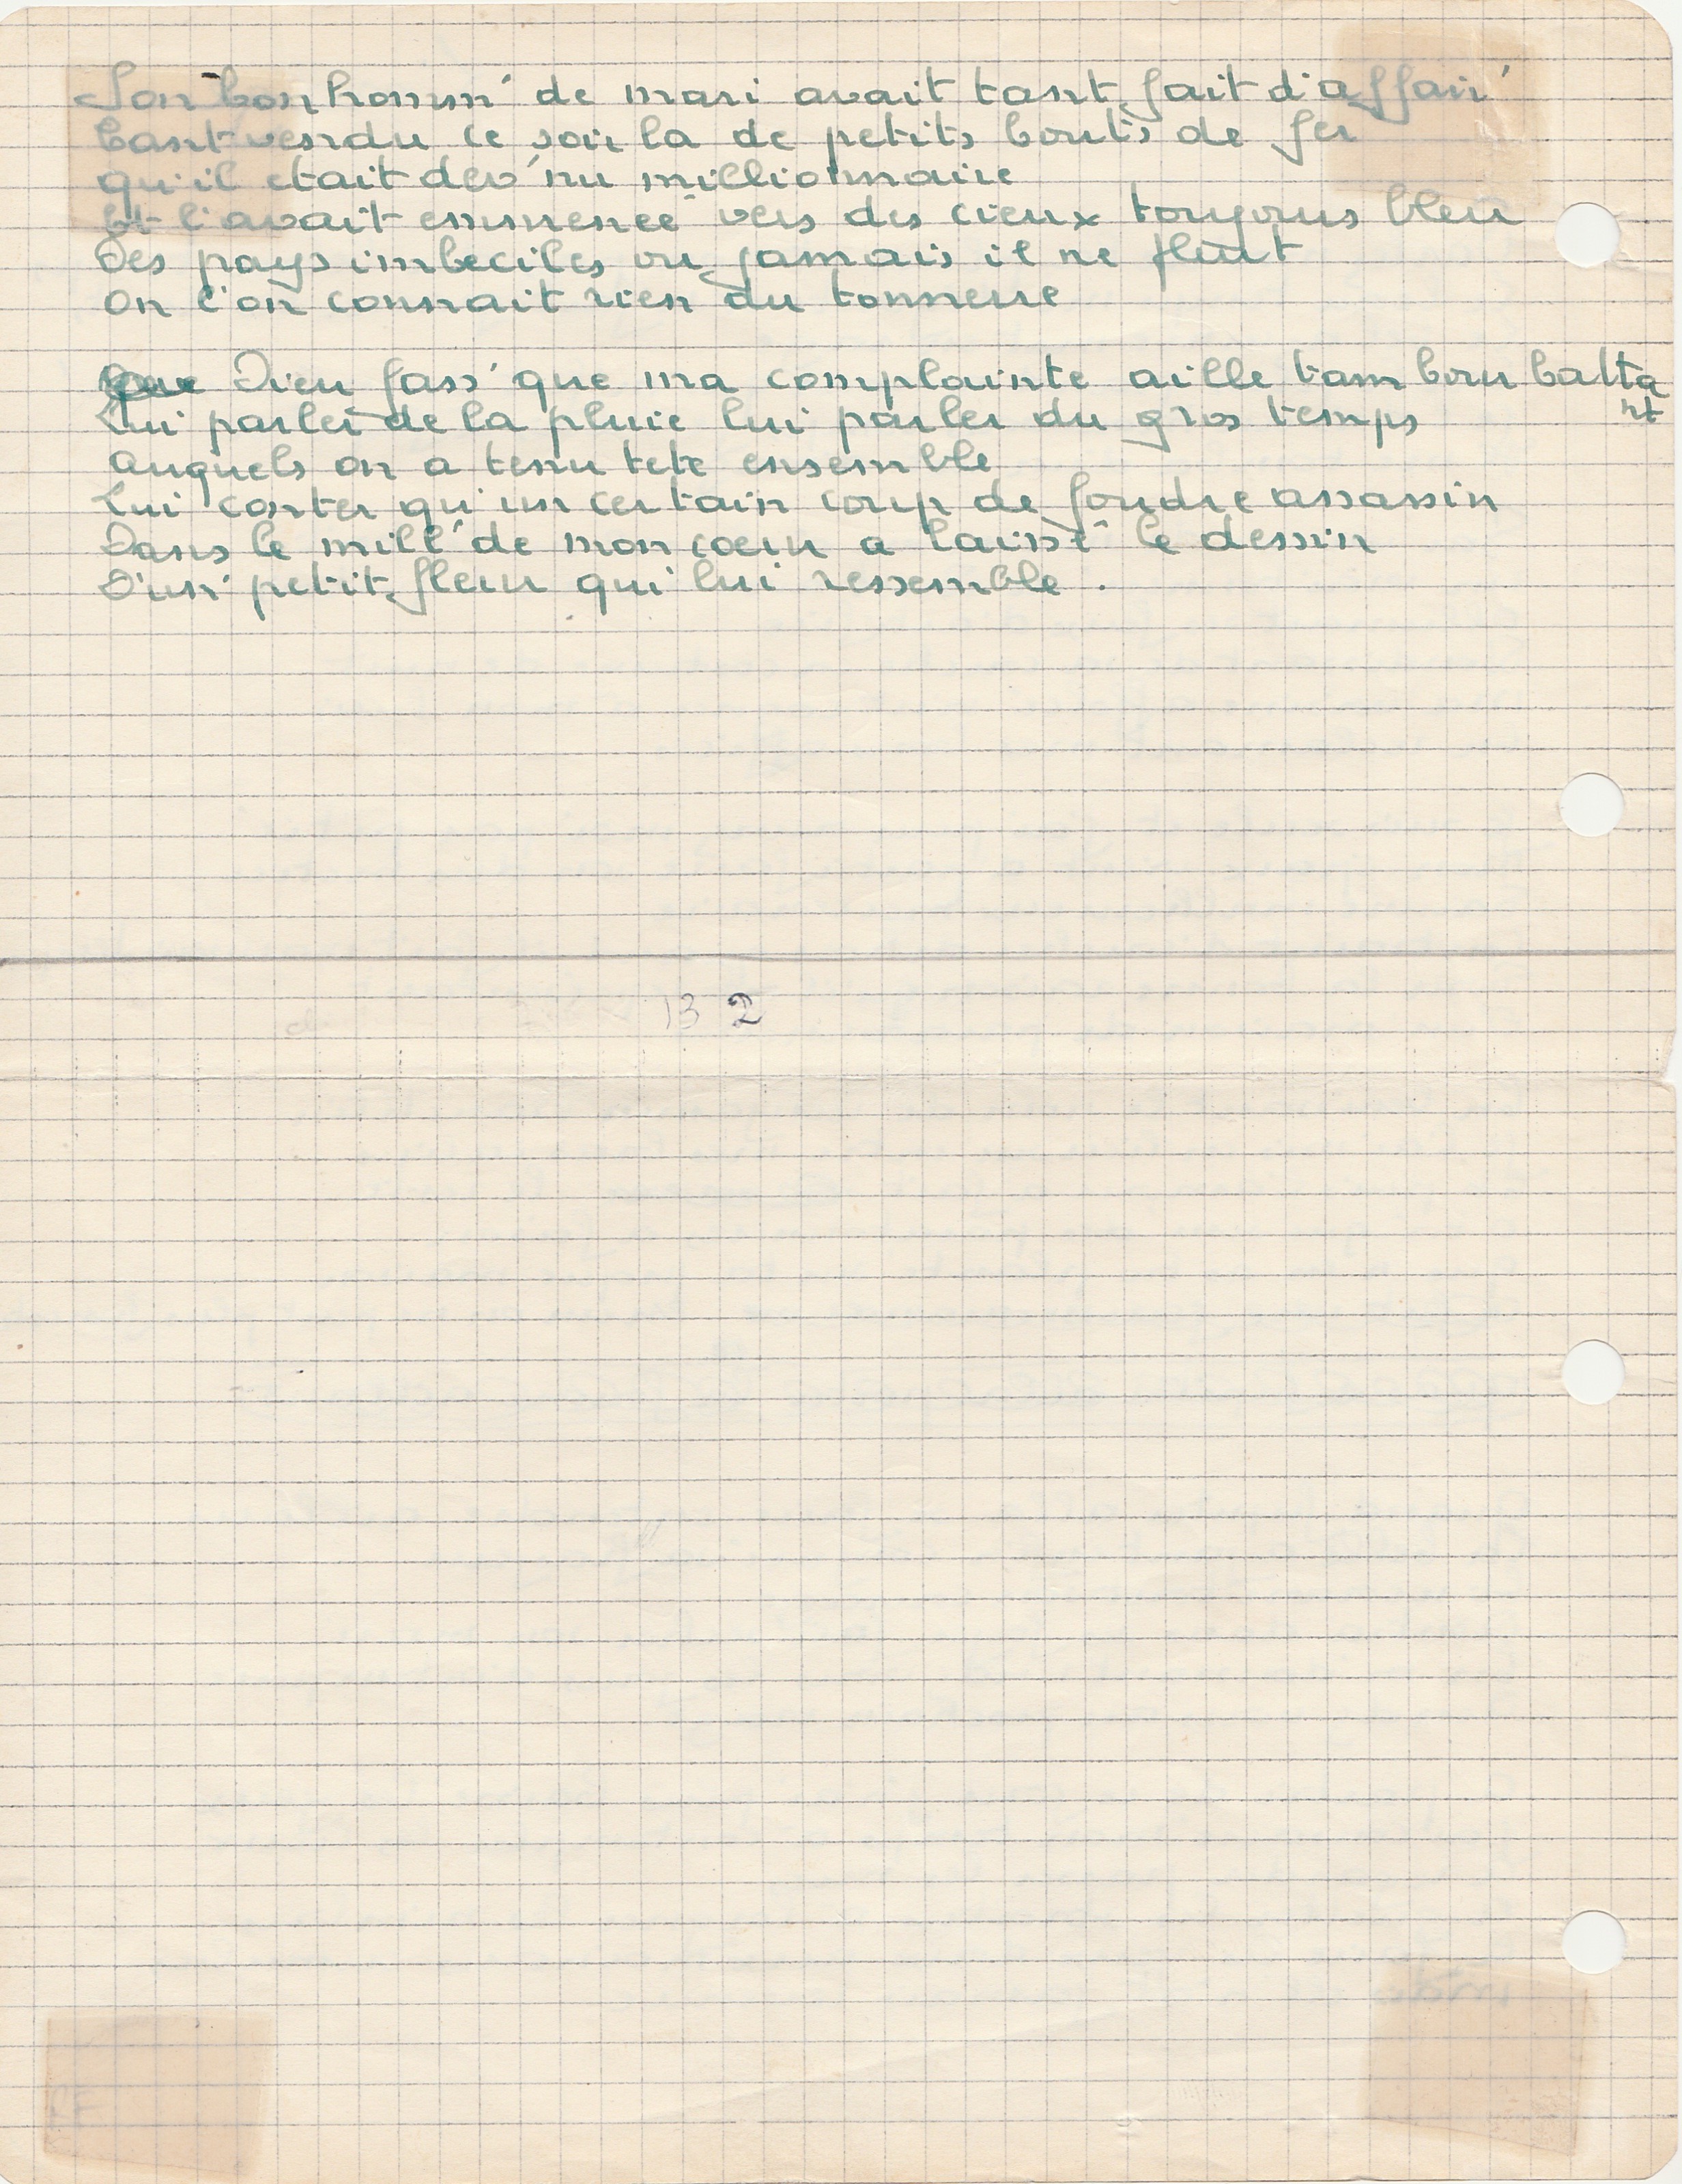 Son bonhomm' de mari avait tant fait d'affair'
tant vendu ce soir la de petits bouts de fer
qu'il etait dev'nu millionnaire
Et l'avait emmenée vers des cieux toujours bleu
Des pays imbeciles ou jamais il ne pleut
On l'on connait rien du tonnerre
Dieu fass' que ma complainte aille tambour batta
nt
Lui parler de la pluie lui parler du gros temps
auquels on a tenu tete ensemble
Lui conter qu'un certain coup de foudre assassin
Dans le mill' de mon coeur a laissé le dessin
D'un' petit fleur qui lui ressemble .
13 2